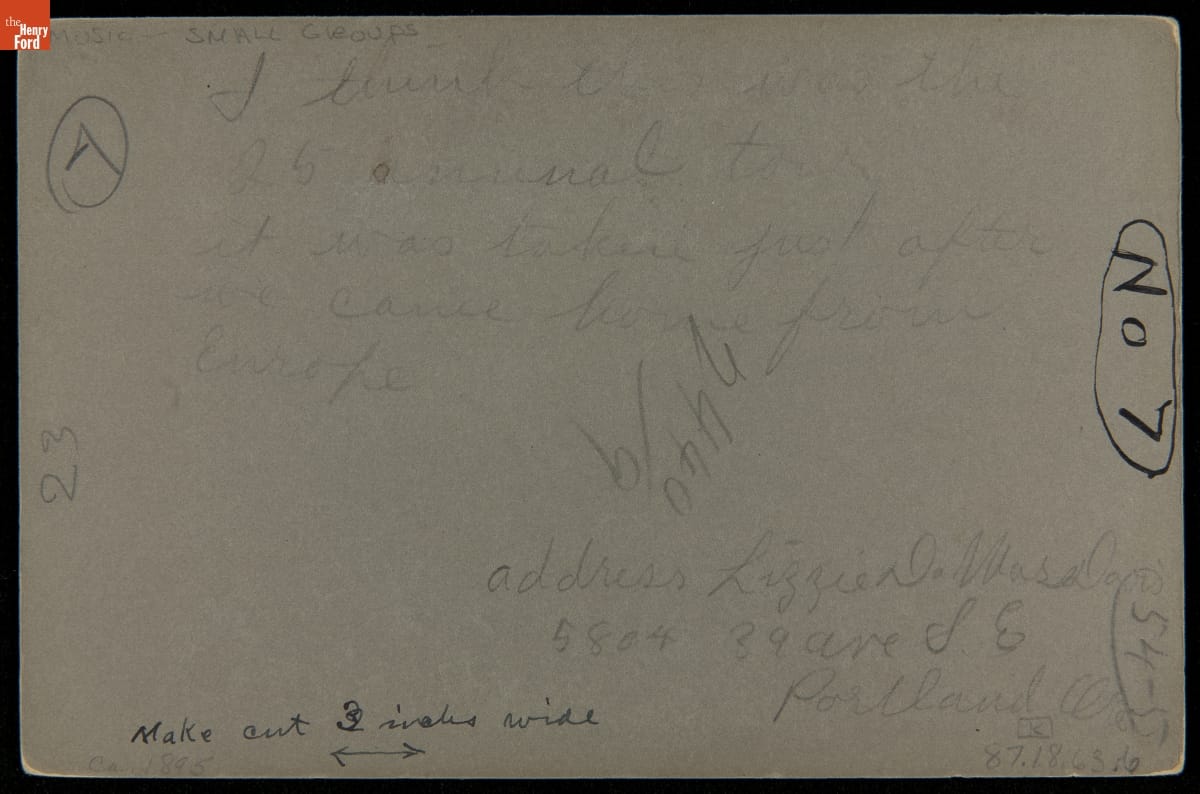 the
Henry
Ford
MUSIC - SMALL GROUPS
I think this was the
25 annual tour
it was taken just after
we came home from
Europe
7
No 7
23
6/9
address Lizzie D.
5804 39 ave S. E
Portland
Make cut 3 inches wide
Ca. 1895
87.18.63.6